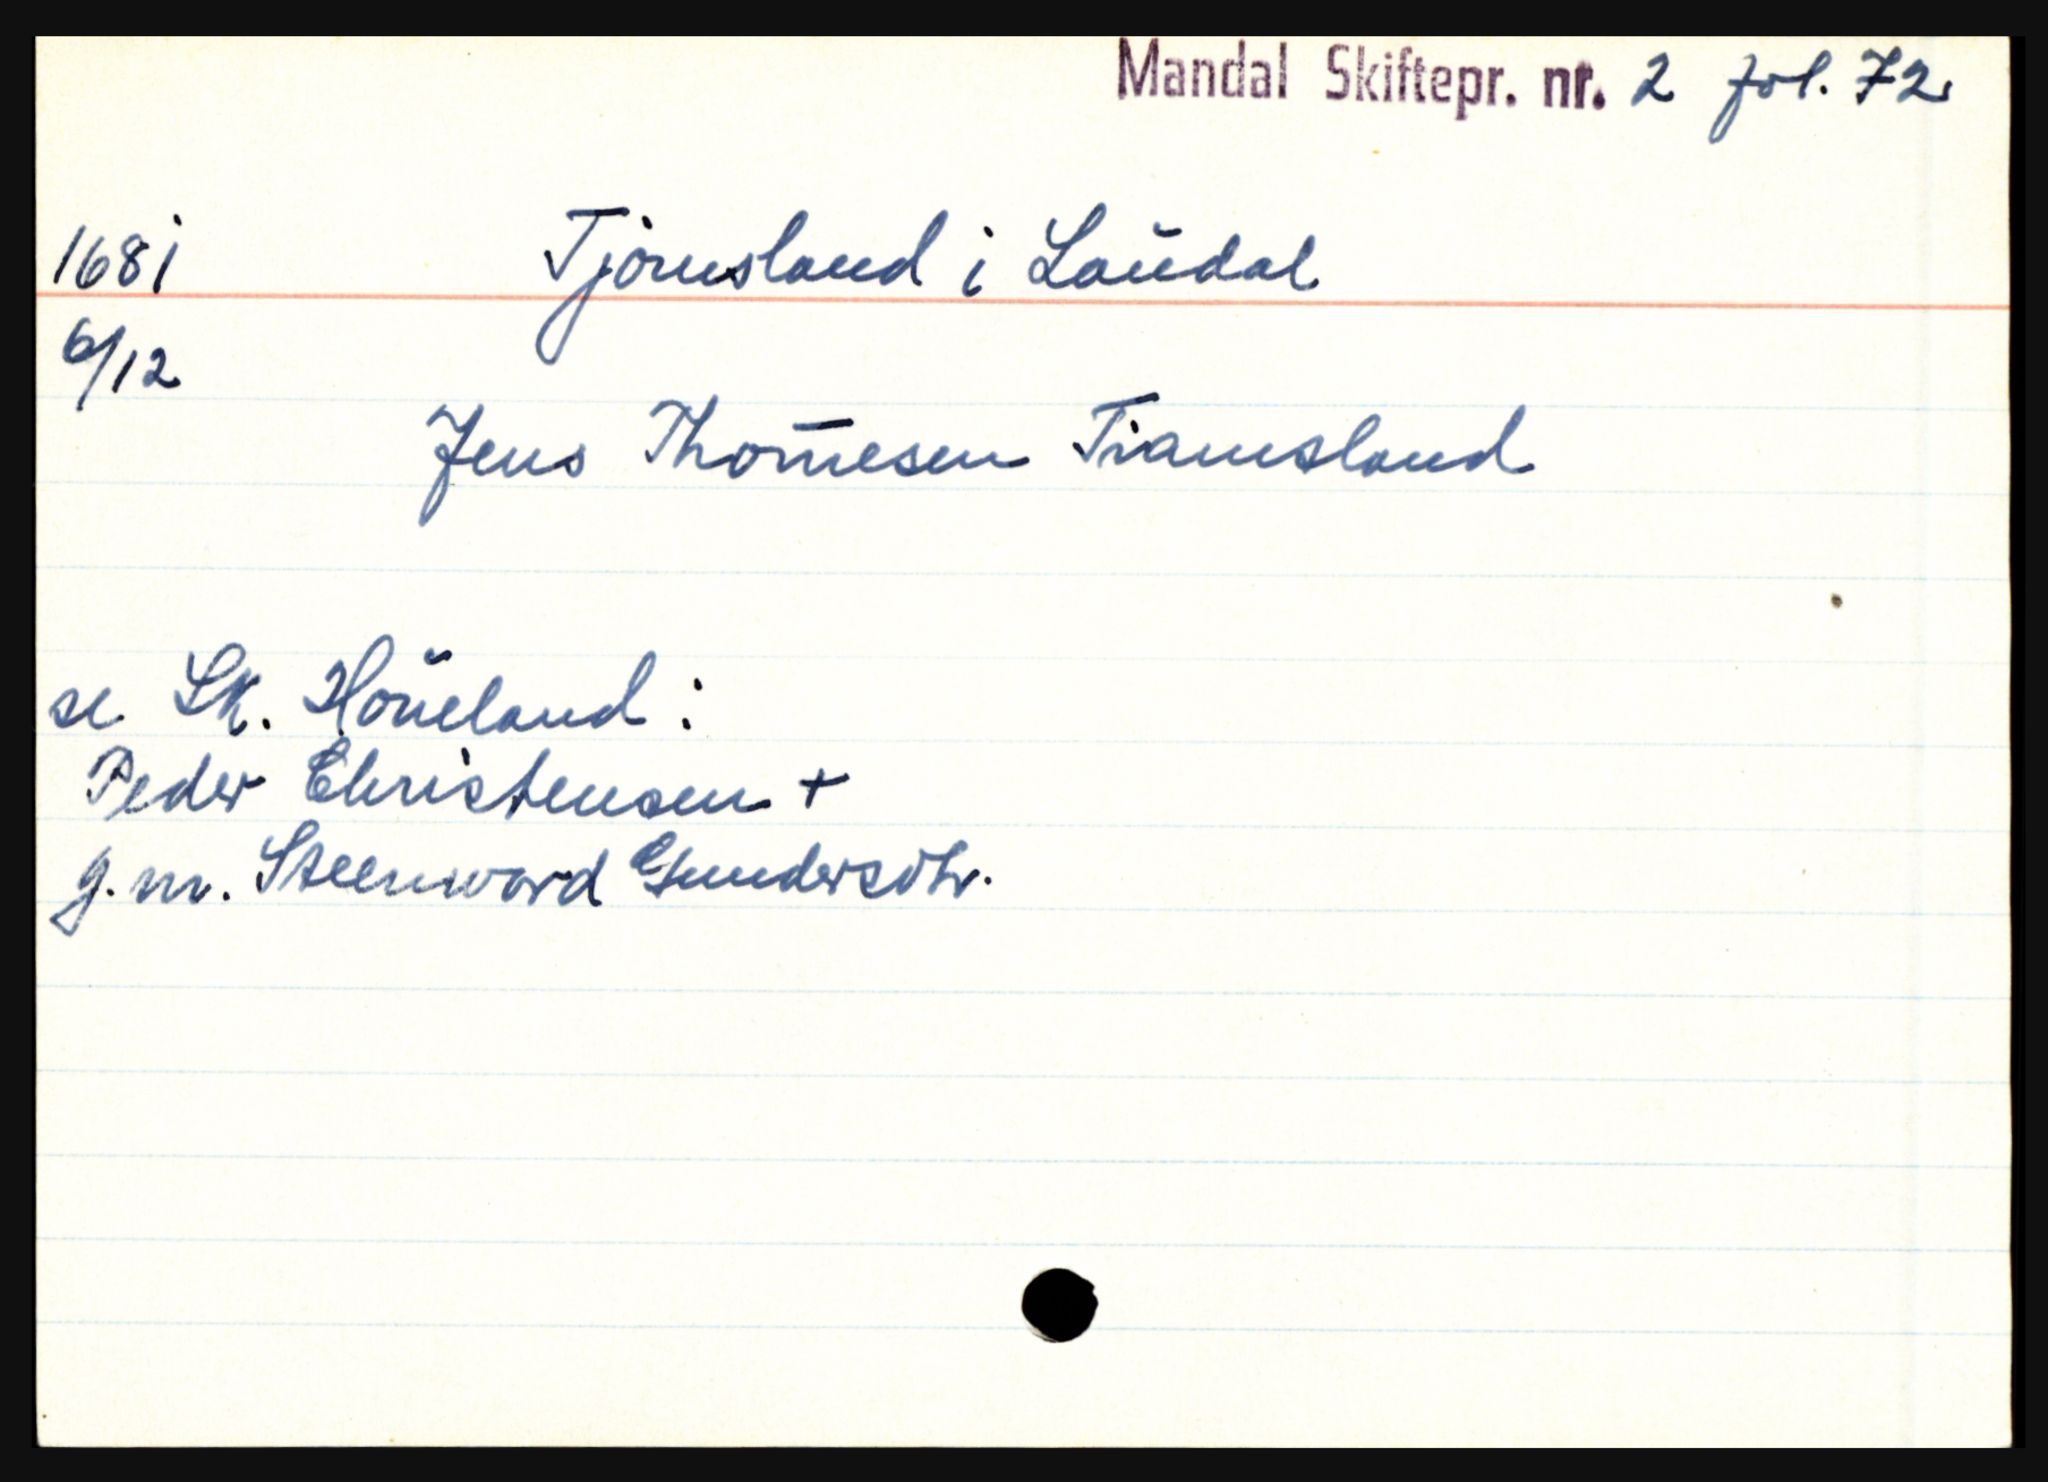 Mandal Skiftepr. nr. 2 fol. 72
1681 Tjomsland i Laudal
6/12
Jens Thom̄esen Tiamsland
se Sk. Höŭeland :
Peder Christensen +
g. m. Steenword Gundersdtr.